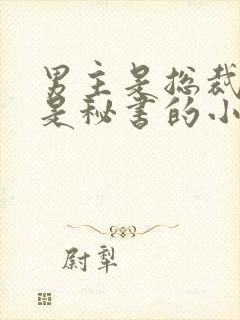 男主是总裁
是秘书的小
尉犁